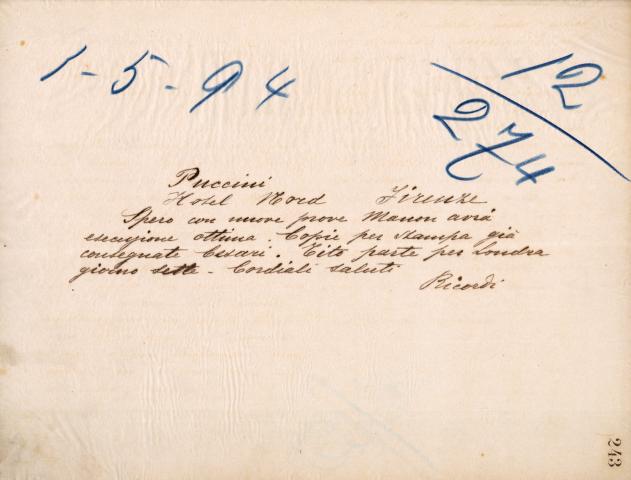 1-5-94
12/274
Puccini
Hotel Nord Firenze
Spero con nuove prove Manon avrà
esecuzione ottima. Copie per stampa già
consegnate Cesari. Tito parte per Londra
giorno sette - Cordiali saluti
Ricordi
243